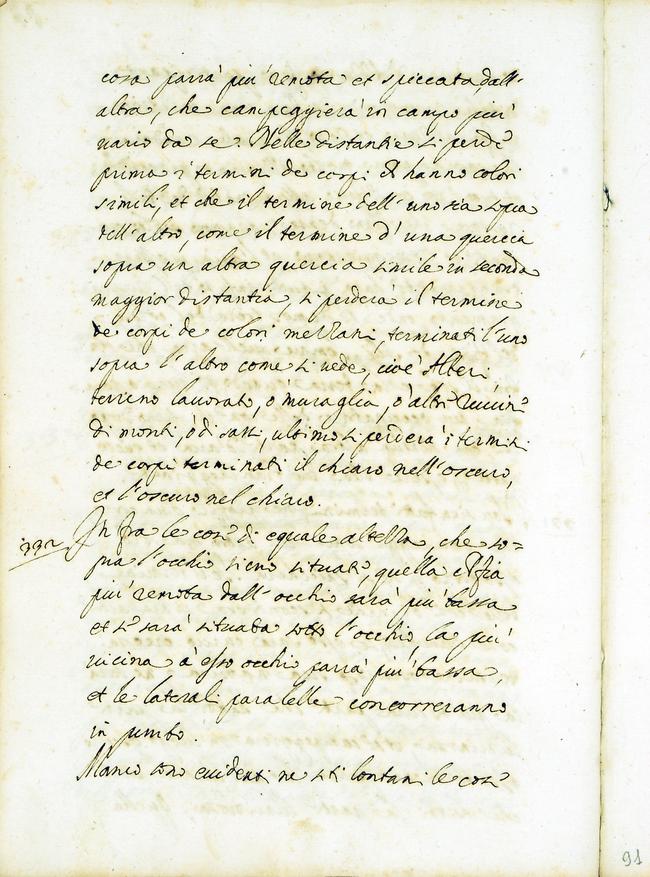 cosa parrà più remota et spiccata dall'
altra, che campeggierà in campo più
vario da se. Nelle distantie si perde
prima i termini de corpi ch hanno colori
simili, et che il termine dell'uno sia sopra
dell'altro, come il termine d'una quercia
sopra un altra quercia simile in seconda
maggior distantia, si perderà il termine
de corpi de colori mezzani, terminati l'uno
sopra l'altro come si vede, cioè Alberi
terreno lavorato, ò muraglia, ò altri ruuin
di monti, ò di sassi, ultimo si perderà i termini
de corpi terminati il chiaro nell'oscuro,
et l'oscuro nel chiaro.
332 In fra le cose di equale altezza, che so=
pra l'occhio sieno situate, quella ch fia
più remota dall'occhio sarà più bassa
et se sarà situata sotto l'occhio, la più
vicina à esso occhio parrà più bassa,
et le laterali paralelle concorreranno
in punto.
Manco sono evidenti ne siti lontani le cose
91